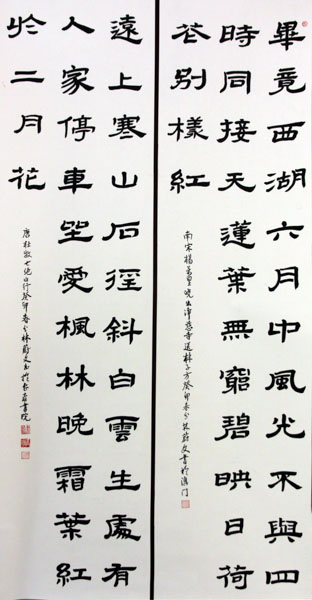 畢竟西湖六月中風光不與四
時同接天蓮葉無窮碧映日荷
花别樣紅
南宋楊萬里曉出淨慈寺送林子方癸卯春分林蔚文書於澳门
遠上寒山石徑斜白雲生處有
人家停車坐愛楓林晚霜葉紅
於二月花
唐杜牧七绝山行癸卯春分林蔚文书於書院